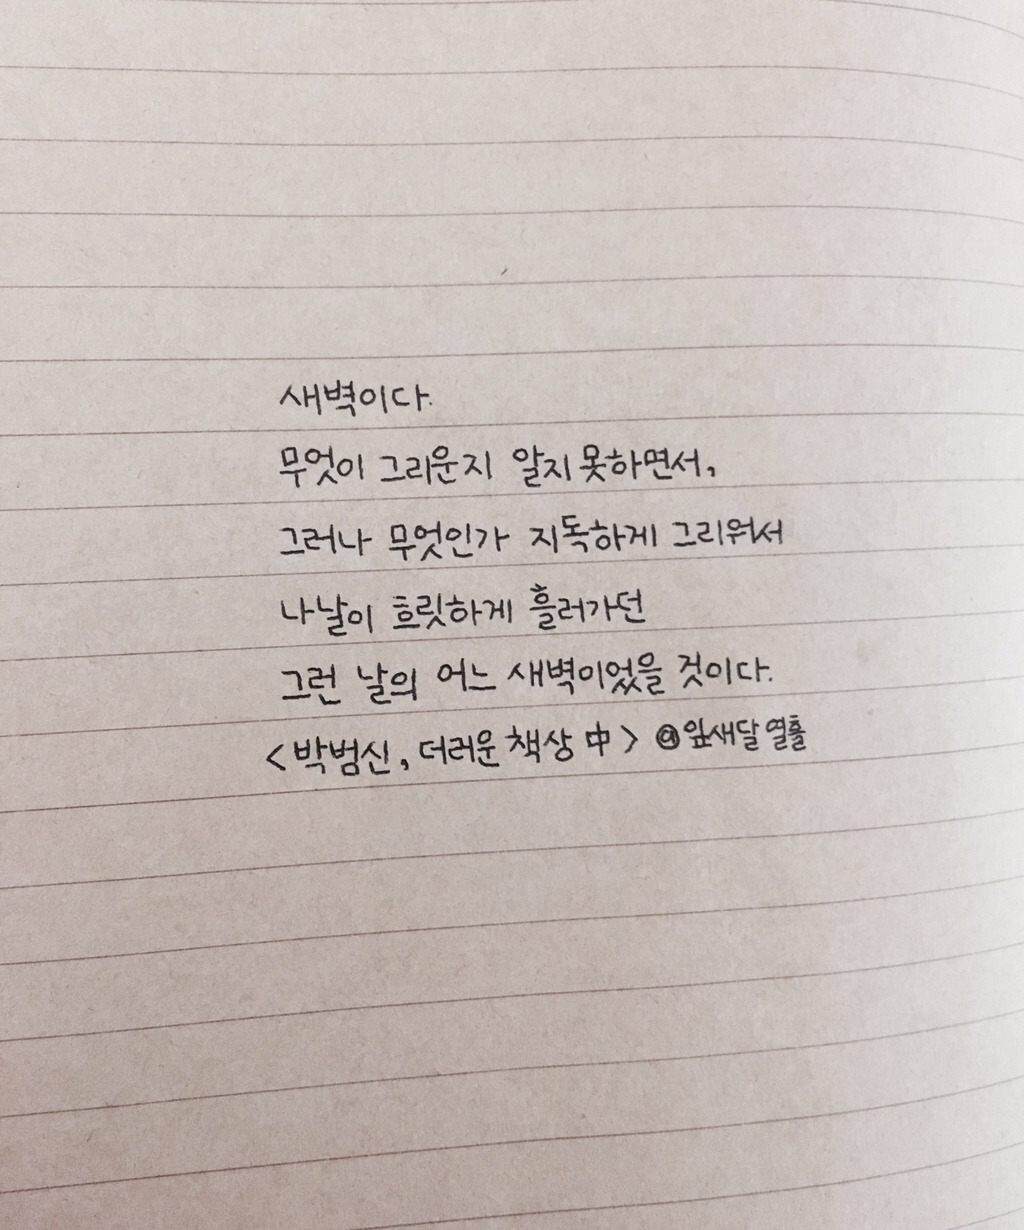 새벽이다.
무엇이 그리운지 알지 못하면서,
그러나 무엇인가 지독하게 그리워서
나날이 흐릿하게 흘러가던
그런 날의 어느 새벽이었을 것이다.
<박범신, 더러운 책상 中> @잎새달열흘